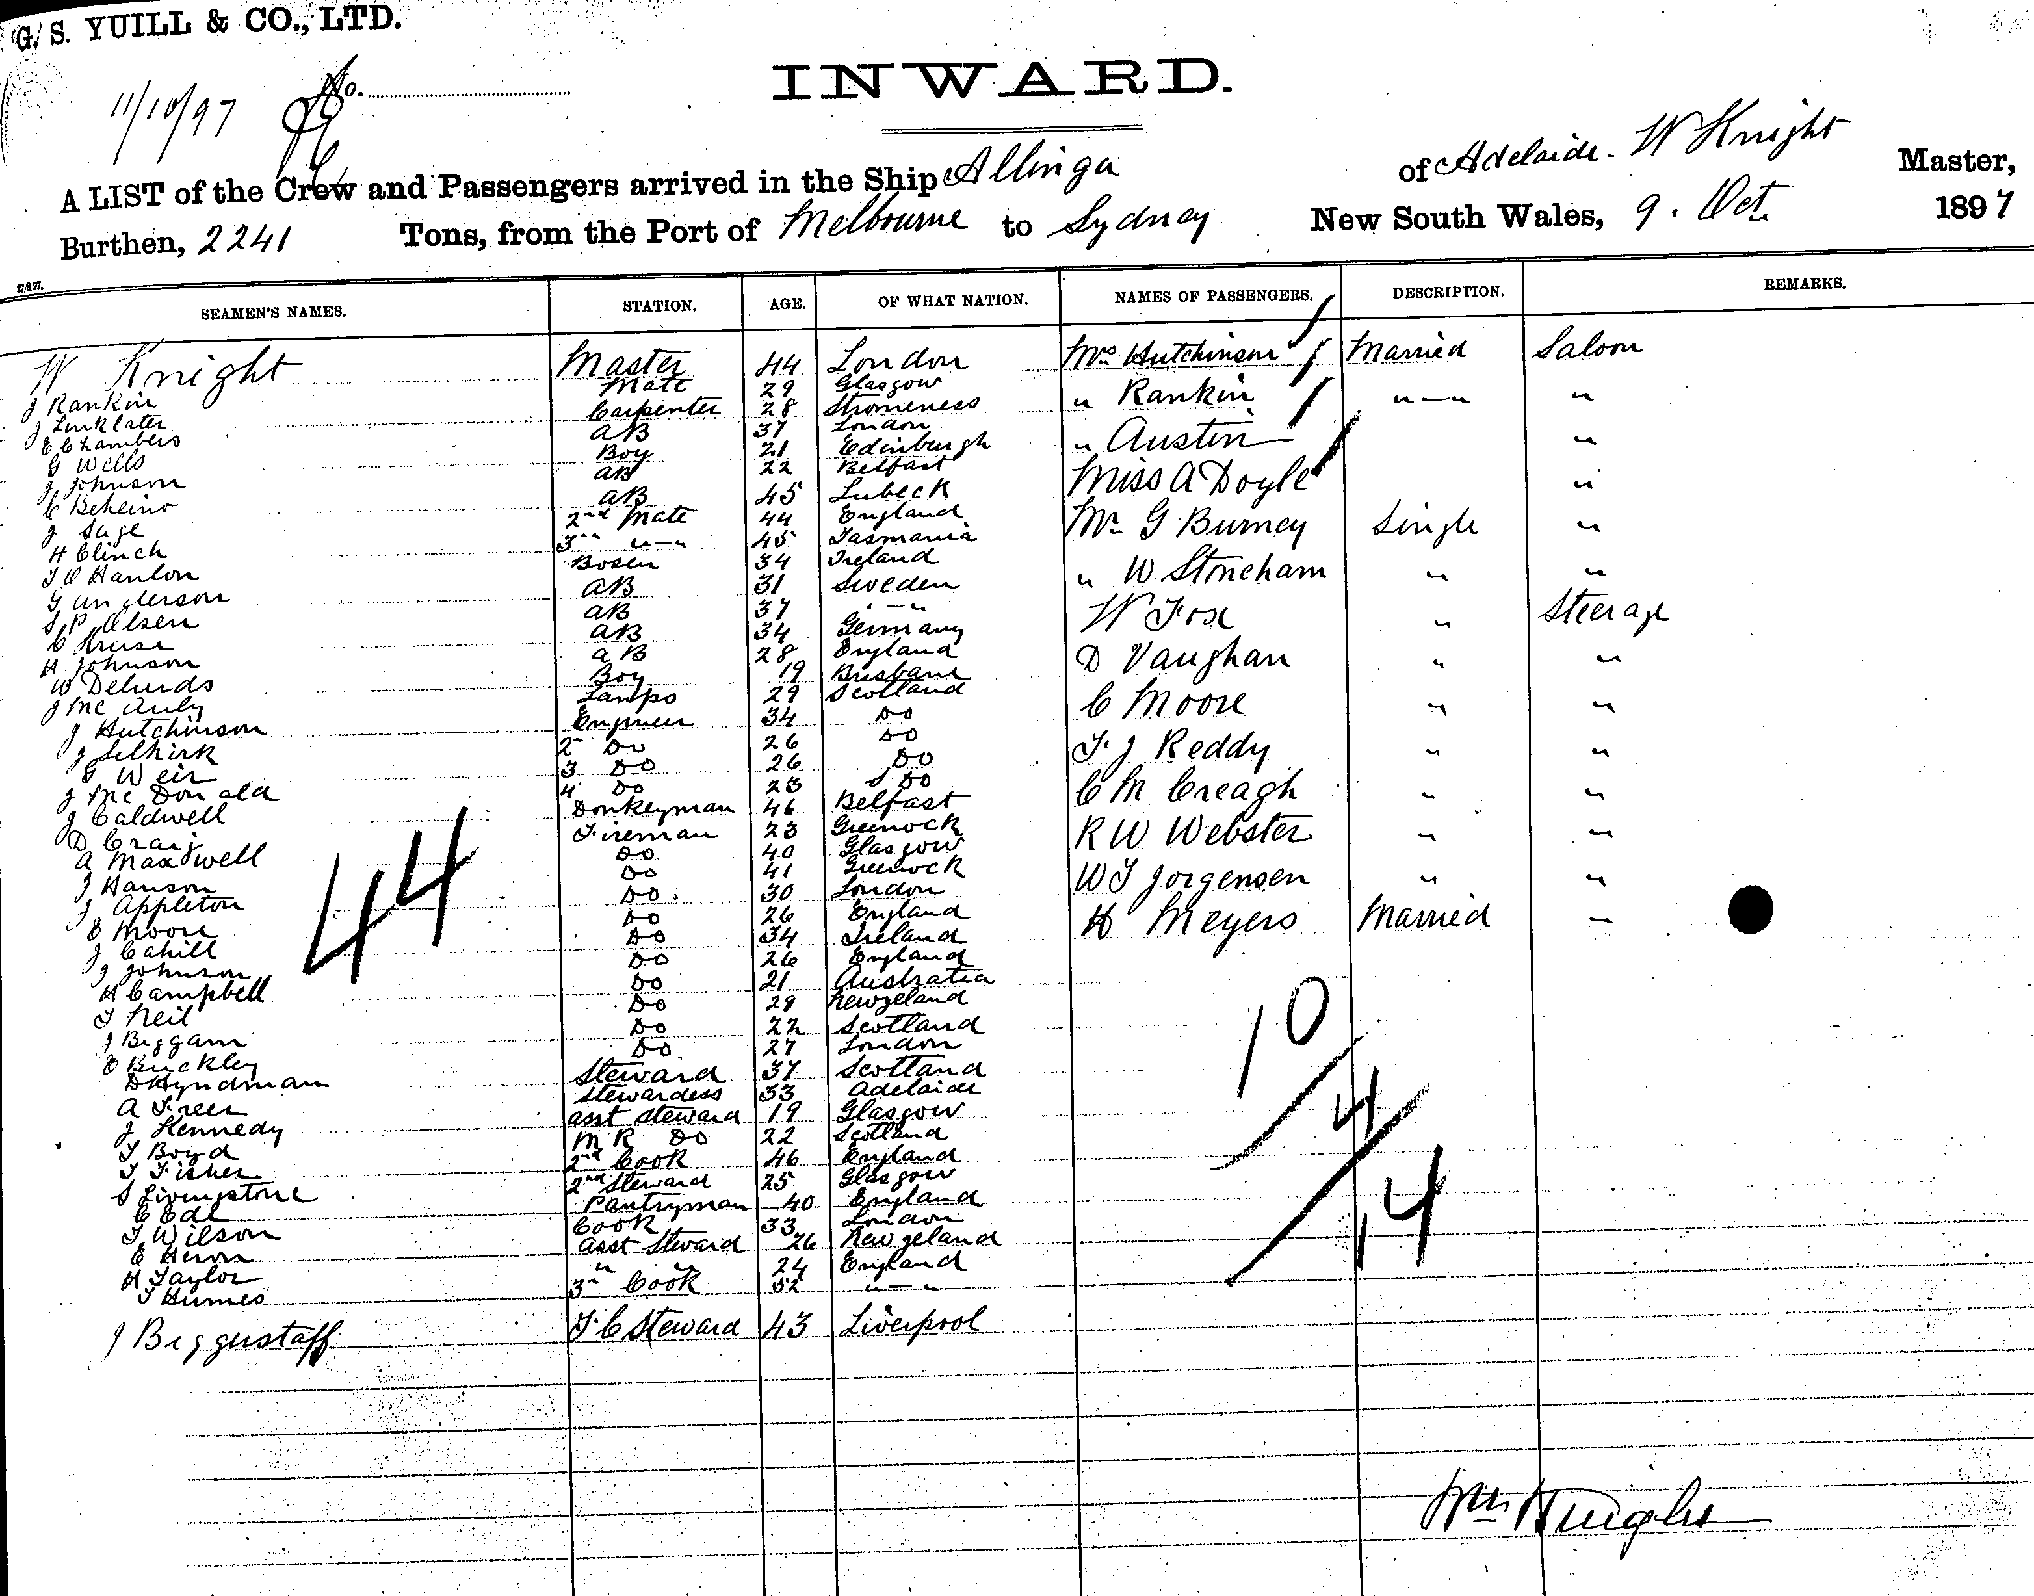 G. S. YUILL & CO., LTD.
No.
11/10/97
INWARD.
A LIST of the Crew and Passengers arrived in the Ship Allinga of Adelaide. W Knight Master,
Burthen, 2241 Tons, from the Port of Melbourne to Sydney New South Wales, 9. Oct. 1897
SEAMEN'S NAMES. STATION. AGE. OF WHAT NATION. NAMES OF PASSENGERS. DESCRIPTION. REMARKS.
W Knight Master 44 London
J Rankin Mate 29 Glasgow
J Linklater Carpenter 28 Stromness
E Chambers AB 37 London
G Wells Boy 21 Edinburgh
J Johnson AB 22 Belfast
C Beheino AB 45 Lubeck
J Sage 2nd Mate 44 England
H Clinch 3rd "—" 45 Tasmania
T O Hanlon Bosen 34 Ireland
G Anderson AB 31 Sweden
S P Olsen AB 37 "—"
C Kruse AB 34 Germany
H Johnson AB 28 England
W Delurds Boy 19 Brisbane
J Mc Auly Lamps 29 Scotland
J Hutchinson Engineer 34 Do
J Selkirk 2 Do 26 Do
G Weir 3 Do 26 Do
J Mc Donald 4 Do 23 Do
J Caldwell Donkeyman 46 Belfast
D Craig Fireman 23 Greenock
A Maxwell Do 40 Glasgow
J Hanson Do 41 Greenock
J Appleton Do 30 London
E Moore Do 26 England
J Cahill Do 34 Ireland
J Johnson Do 26 England
H Campbell Do 21 Australia
T Neil Do 29 Newzeland
J Biggam Do 22 Scotland
E Buckley Do 27 London
D Hyndman Steward 37 Scotland
A Freer Stewardess 33 Adelaide
J Kennedy asst steward 19 Glasgow
T Boyd M R Do 22 Scotland
T Fisher 2nd Cook 46 England
S Livingstone 2nd Steward 25 Glasgow
C Ede Pantryman 40 England
T Wilson Cook 33 London
E Heron asst Steward 26 Newzeland
H Taylor " " 24 England
T Humes 3rd Cook 52 "—"
J Biggustaff F.C Steward 43 Liverpool
44
Mrs Hutchinson Married Saloon
" Rankin "—" "
" Austin "
Miss A Doyle "
Mr G Burney Single "
" W Stoneham " "
W Fox " Steerage
D Vaughan " "
C Moore " "
T. J Reddy " "
C M Creagh " "
R W Webster " "
W J Jorgensen " "
H Meyers Married "
10
4
14
Wm Knight